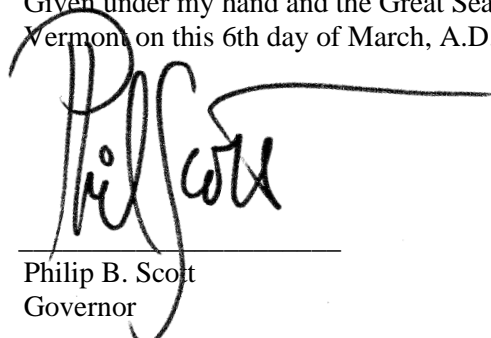 Given under my hand and the Great Sea
Vermont on this 6th day of March, A.D
Phil Scott
Philip B. Scott
Governor